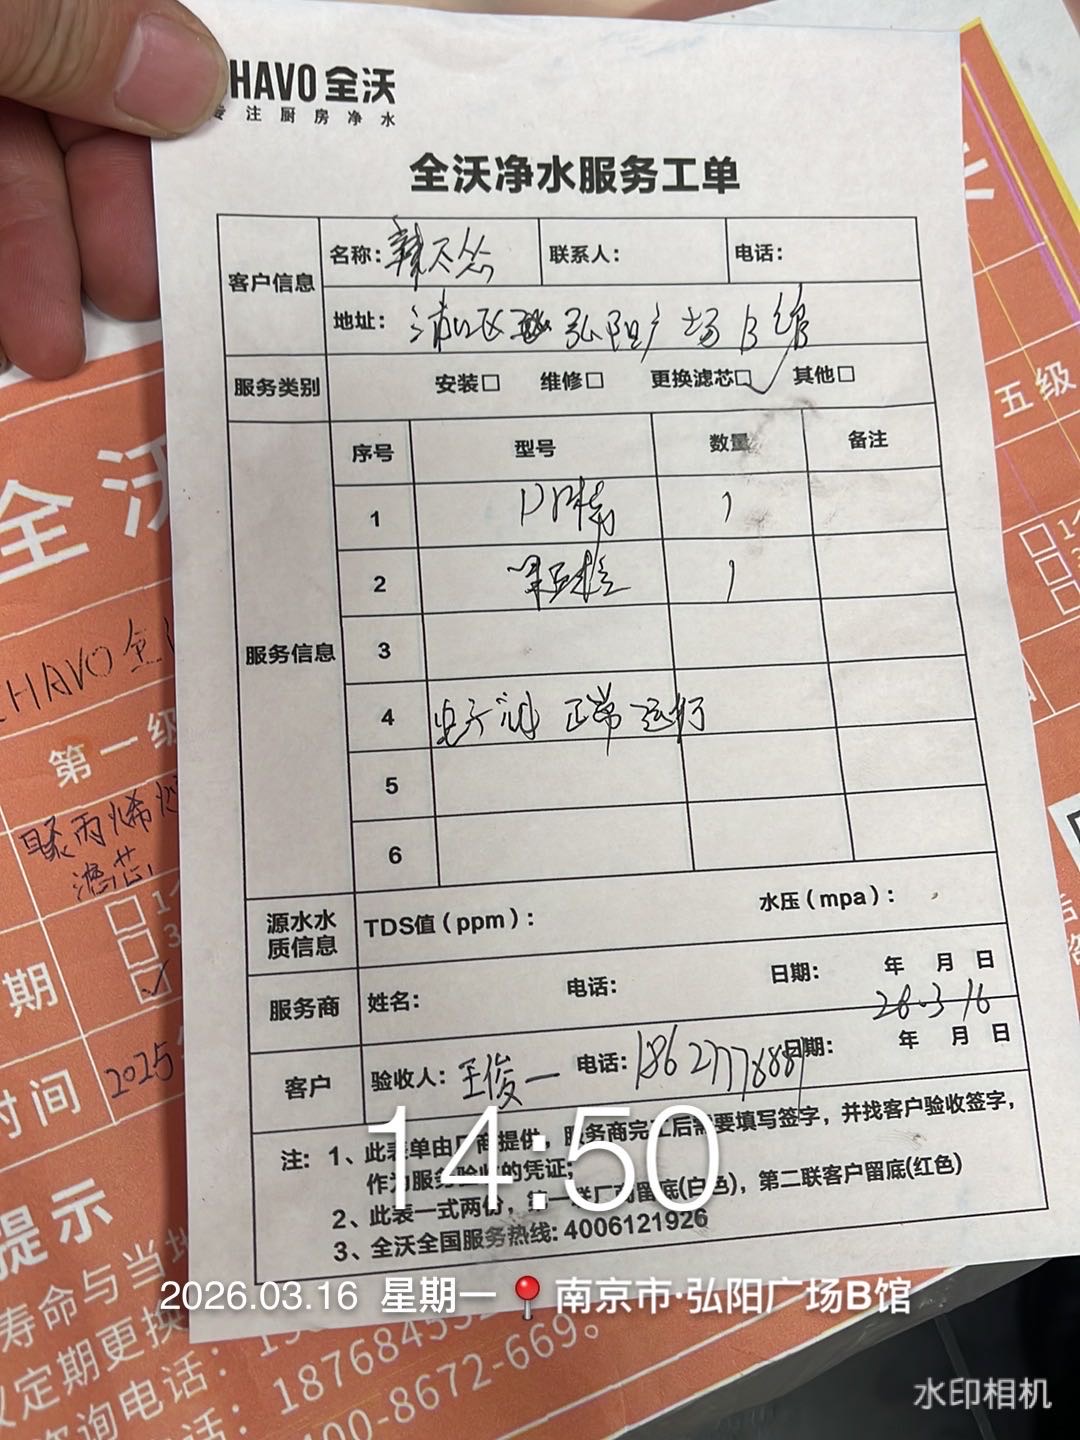 HAVO 全沃
注厨房净水
全沃净水服务工单
客户信息
名称：辣不怂 联系人： 电话：
地址：浦口区 弘阳广场B馆
服务类别 安装□ 维修□ 更换滤芯□✓ 其他□
服务信息
序号 型号 数量 备注
1 PP棉 1
2 1
3
4 电子 正常运行
5
6
源水水质信息 TDS值（ppm）： 水压（mpa）：
服务商 姓名： 电话： 日期： 年 月 日
26.3.16
客户 验收人：王俊一 电话：18627778889 日期： 年 月 日
注：1、此表单由厂商提供，服务商完工后需要填写签字，并找客户验收签字，
作为服务验收的凭证；
2、此表一式两份，第一联厂商留底(白色)，第二联客户留底(红色)
3、全沃全国服务热线：4006121926
14:50
2026.03.16 星期一 南京市·弘阳广场B馆
水印相机
全沃
五级
CHAVO 全
第一级
聚丙烯
滤芯
期
时间
2025
提示
寿命与当
定期更换
询电话：
187684532
00-8672-669。